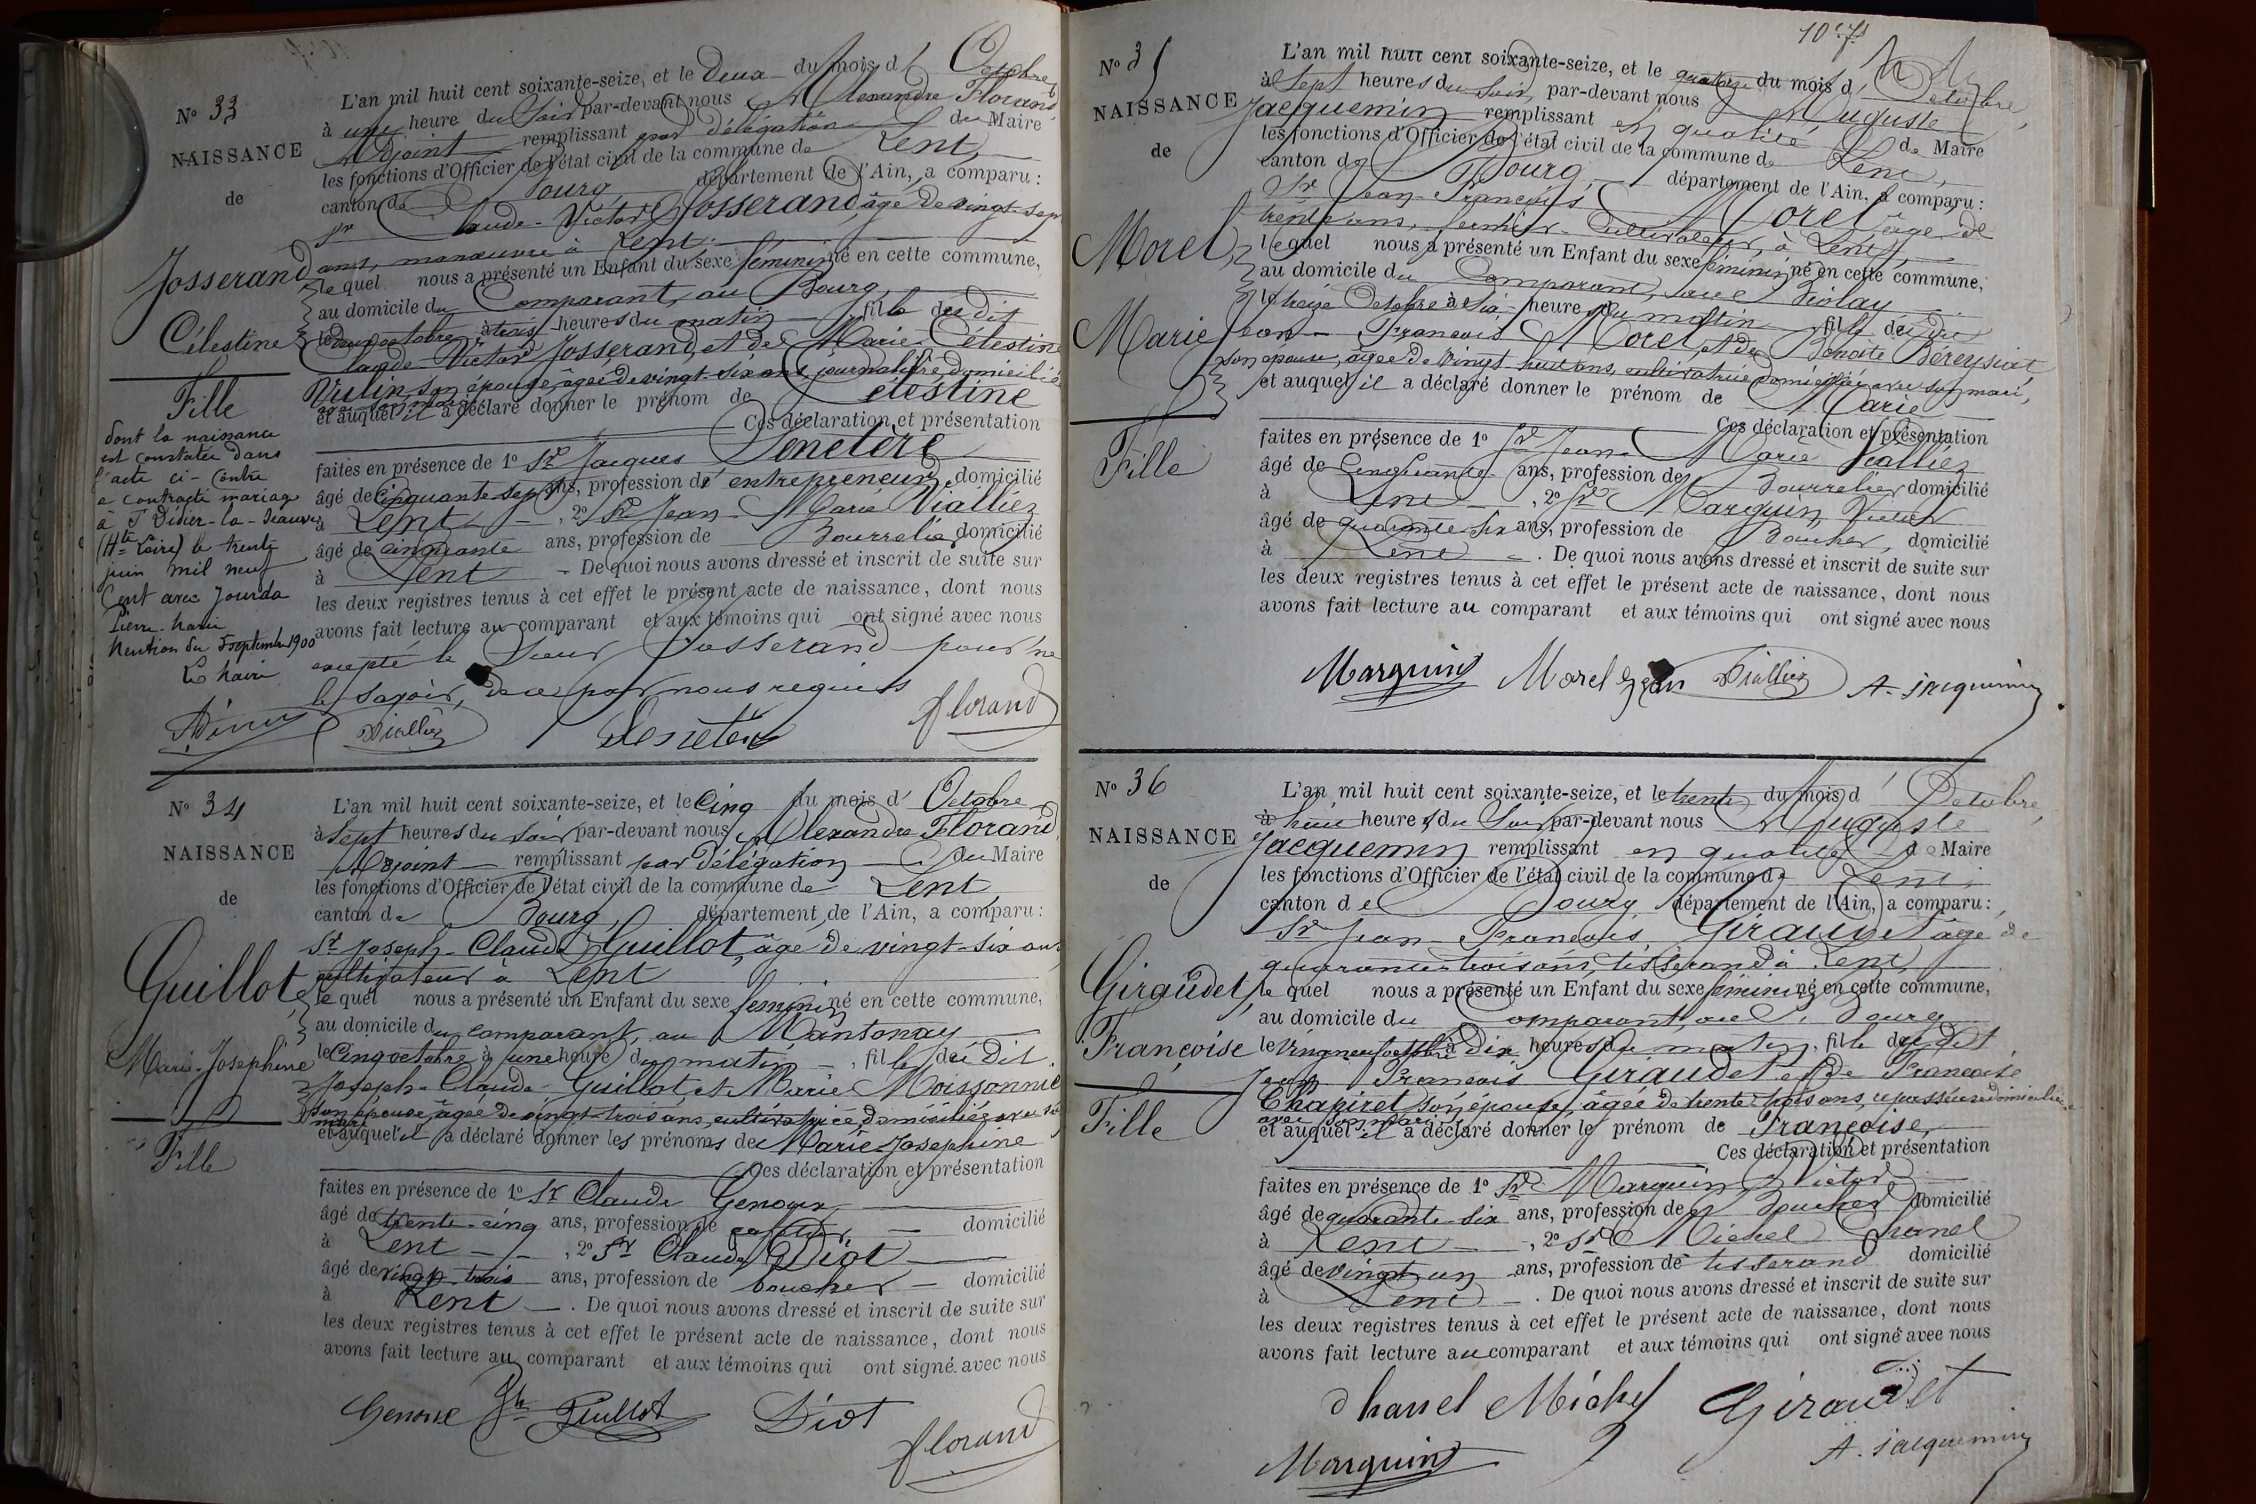 N° 33
NAISSANCE
de
Josserand
Célestine
Fille
dont la naissance
est constatée dans
l'acte ci-contre
a contracté mariage
à St Didier-la-Séauve
(Hte Loire) le trente
juin mil neuf
Cent avec Jourda
Pierre-Marie
Mention du 5 septembre 1900
Le Maire
L'an mil huit cent soixante-seize, et le Deux du mois d'Octobre
à une heure du Soir par-devant nous Alexandre Florand
Adjoint remplissant par délégation du Maire
les fonctions d'Officier de l'état civil de la commune de Lent,
canton de Bourg département de l'Ain, a comparu :
Sr Claude-Victor Josserand, âgé de vingt-sept
ans, manœuvre à Lent.
lequel nous a présenté un Enfant du sexe féminin né en cette commune,
au domicile du Comparant, au Bourg,
le deux octobre à trois heures du matin fille du dit
Claude-Victor Josserand, et de Marie-Célestine
Vulin son épouse, âgée de vingt-six ans, journalière domiciliée
avec son mari
et auquel il a déclaré donner le prénom de Célestine
Ces déclaration et présentation
faites en présence de 1° Sr Jacques Senetère
âgé de Cinquante-sept ans, profession d'entrepreneur domicilié
à Lent, 2° Sr Jean-Marie Vialliez
âgé de cinquante ans, profession de Bourrelier domicilié
à Lent. De quoi nous avons dressé et inscrit de suite sur
les deux registres tenus à cet effet le présent acte de naissance, dont nous
avons fait lecture au comparant et aux témoins qui ont signé avec nous
excepté le Sieur Josserand pour ne
le savoir, de ce par nous requis
Vialliez Senetère Florand
N° 34
NAISSANCE
de
Guillot,
Marie-Joséphine
Fille
L'an mil huit cent soixante-seize, et le Cinq du mois d'Octobre
à Sept heures du Soir par-devant nous Alexandre Florand
Adjoint remplissant par délégation du Maire
les fonctions d'Officier de l'état civil de la commune de Lent
canton de Bourg, département de l'Ain, a comparu :
Sr Joseph-Claude Guillot, âgé de vingt-six ans
cultivateur à Lent
lequel nous a présenté un Enfant du sexe féminin né en cette commune,
au domicile du comparant, au Mantonay
le Cinq octobre à une heure du matin, fille du dit
Joseph-Claude Guillot, et Marie Moissonnier
son épouse âgée de vingt-trois ans, cultivatrice domiciliée avec son
mari
et auquel il a déclaré donner les prénoms de Marie-Joséphine
Ces déclaration et présentation
faites en présence de 1° Sr Claude Genoux
âgé de trente-cinq ans, profession de domicilié
à Lent, 2° Sr Claude Diot
âgé de vingt-trois ans, profession de boucher domicilié
à Lent. De quoi nous avons dressé et inscrit de suite sur
les deux registres tenus à cet effet le présent acte de naissance, dont nous
avons fait lecture au comparant et aux témoins qui ont signé avec nous
Genoux Jh Guillot Diot
Florand
N° 35
NAISSANCE
de
Morel,
Marie
Fille
L'an mil huit cent soixante-seize, et le quatorze du mois d'Octobre,
à Sept heures du Soir, par-devant nous Auguste
Jacquemin remplissant en qualité de Maire
les fonctions d'Officier de l'état civil de la commune de Lent,
canton de Bourg, département de l'Ain, a comparu :
Sr Jean-François Morel, âgé de
trente ans, fermier-cultivateur, à Lent,
lequel nous a présenté un Enfant du sexe féminin né en cette commune,
au domicile du Comparant, au Violay
le treize Octobre à Six heures du matin fille du dit
Jean-François Morel, et de Benoite Béreysiat,
son épouse, âgée de vingt huit ans, cultivatrice domiciliée avec son mari,
et auquel il a déclaré donner le prénom de Marie
Ces déclaration et présentation
faites en présence de 1° Sr Jean Marie Vialliez
âgé de Cinquante ans, profession de Bourrelier domicilié
à Lent, 2° Sr Marguin Victor
âgé de quarante six ans, profession de Boucher, domicilié
à Lent. De quoi nous avons dressé et inscrit de suite sur
les deux registres tenus à cet effet le présent acte de naissance, dont nous
avons fait lecture au comparant et aux témoins qui ont signé avec nous
Marguin Morel Jean Vialliez A. Jacquemin
N° 36
NAISSANCE
de
Giraudet,
Françoise
Fille
L'an mil huit cent soixante-seize, et le trente du mois d'Octobre,
à huit heures du Soir par-devant nous Auguste
Jacquemin remplissant en qualité de Maire
les fonctions d'Officier de l'état civil de la commune de Lent,
canton de Bourg département de l'Ain, a comparu :
Sr Jean-François Giraudet âgé de
quarante trois ans, tisserand à Lent,
lequel nous a présenté un Enfant du sexe féminin né en cette commune,
au domicile du Comparant, au Bourg
le vingt neuf octobre à dix heures du matin, fille du dit
Jean François Giraudet et de Françoise
Chapiret son épouse, âgée de trente-trois ans, repasseuse domiciliée
avec son mari
et auquel il a déclaré donner le prénom de Françoise,
Ces déclaration et présentation
faites en présence de 1° Sr Marguin Victor
âgé de quarante-six ans, profession de Boucher domicilié
à Lent, 2° Sr Michel Chanel
âgé de vingt-un ans, profession de tisserand domicilié
à Lent. De quoi nous avons dressé et inscrit de suite sur
les deux registres tenus à cet effet le présent acte de naissance, dont nous
avons fait lecture au comparant et aux témoins qui ont signé avec nous
Chanel Michel Giraudet
Marguin A. Jacquemin